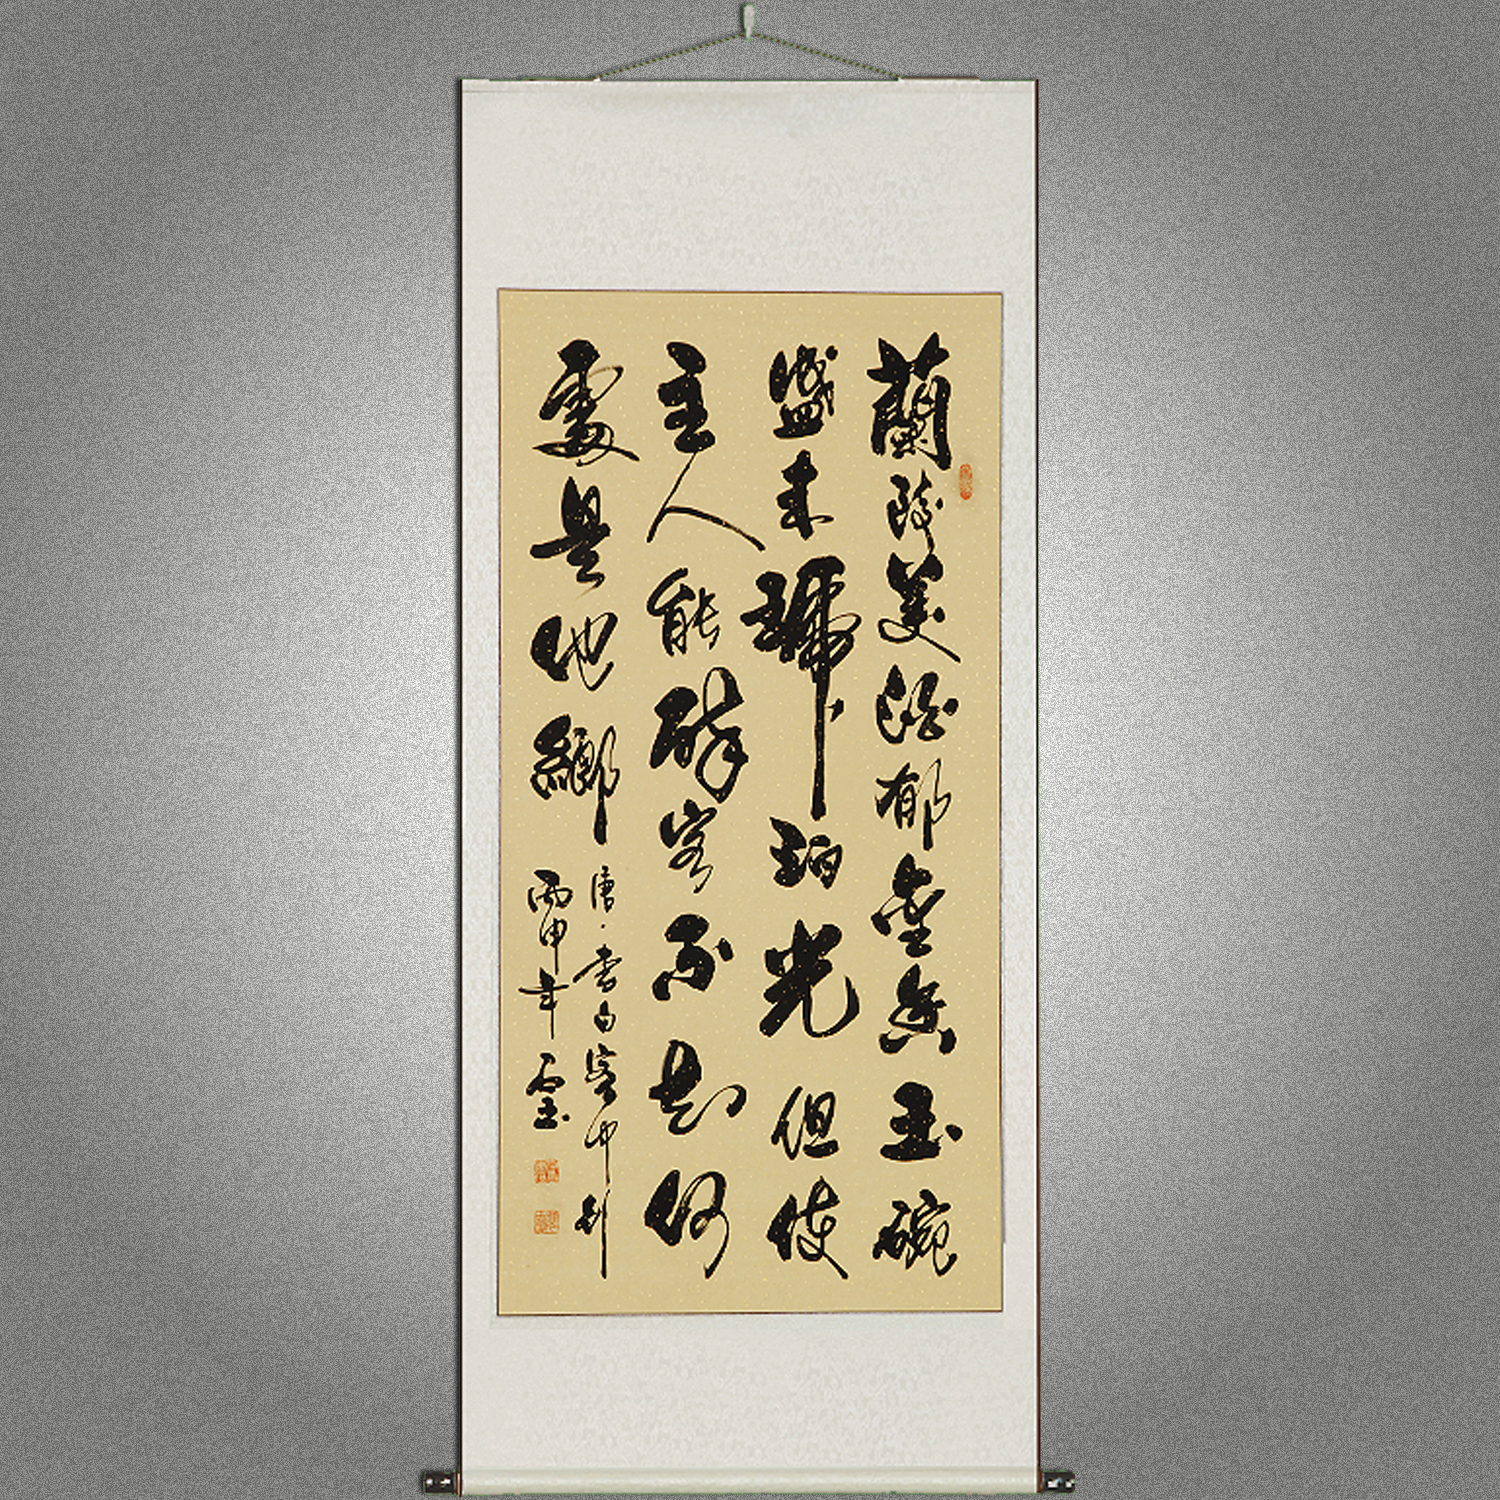 蘭陵美酒郁金香玉碗
盛来琥珀光但使
主人能醉客不知何
處是他鄉
唐·李白客中行
丙申年